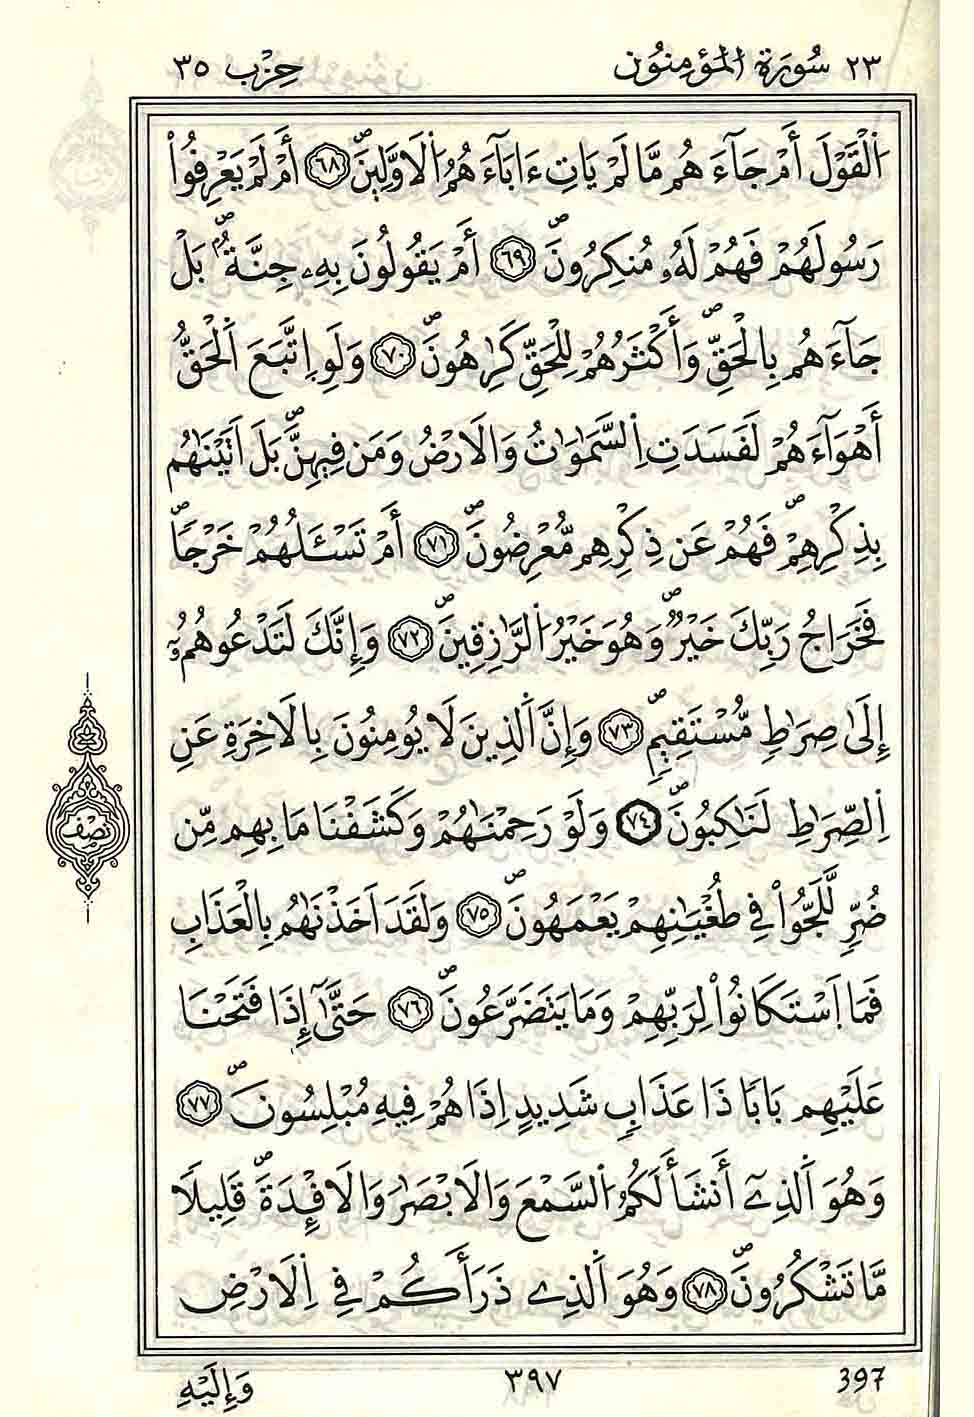 ٢٣ سُورَةُ الْمُؤْمِنُونَ حِزْب ٣٥
اَ۬لْقَوْلَ أَمْ جَآءَهُم مَّا لَمْ يَاتِ ءَابَآءَهُمُ اُ۬لَاوَّلِينَۖ ۝٦٨ أَمْ لَمْ يَعْرِفُواْ
رَسُولَهُمْ فَهُمْ لَهُۥ مُنكِرُونَۖ ۝٦٩ أَمْ يَقُولُونَ بِهِۦ جِنَّةُۢۖ بَلْ
جَآءَهُم بِالْحَقِّۖ وَأَكْثَرُهُمْ لِلْحَقِّ كَٰرِهُونَۖ ۝٧٠ وَلَوِ اِتَّبَعَ اَ۬لْحَقُّ
أَهْوَآءَهُمْ لَفَسَدَتِ اِ۬لسَّمَٰوَٰتُ وَالَارْضُ وَمَن فِيهِنَّۖ بَلَ اَتَيْنَٰهُم
بِذِكْرِهِمْۖ فَهُمْ عَن ذِكْرِهِم مُّعْرِضُونَۖ ۝٧١ أَمْ تَسْـَٔلُهُمْ خَرْجاٗۖ
فَخَرَاجُ رَبِّكَ خَيْرٞۖ وَهُوَ خَيْرُ اُ۬لرَّٰزِقِينَۖ ۝٧٢ وَإِنَّكَ لَتَدْعُوهُمُۥٓ
إِلَىٰ صِرَٰطٖ مُّسْتَقِيمٖۖ ۝٧٣ وَإِنَّ اَ۬لذِينَ لَا يُومِنُونَ بِالَاخِرَةِ عَنِ
اِ۬لصِّرَٰطِ لَنَٰكِبُونَۖ ۝٧٤ وَلَوْ رَحِمْنَٰهُمْ وَكَشَفْنَا مَا بِهِم مِّن
ضُرّٖ لَّلَجُّواْ فِي طُغْيَٰنِهِمْ يَعْمَهُونَۖ ۝٧٥ وَلَقَدَ اَخَذْنَٰهُم بِالْعَذَابِ
فَمَا اَ۪سْتَكَانُواْ لِرَبِّهِمْ وَمَا يَتَضَرَّعُونَۖ ۝٧٦ حَتَّىٰٓ إِذَا فَتَحْنَا
عَلَيْهِم بَاباٗ ذَا عَذَابٖ شَدِيدٍ اِذَا هُمْ فِيهِ مُبْلِسُونَۖ ۝٧٧
وَهُوَ اَ۬لذِےٓ أَنشَأَ لَكُمُ اُ۬لسَّمْعَ وَالَابْصَٰرَ وَالَافْـِٕدَةَۖ قَلِيلاٗ
مَّا تَشْكُرُونَۖ ۝٧٨ وَهُوَ اَ۬لذِے ذَرَأَكُمْ فِي اِ۬لَارْضِ
نِصْف
وَإِلَيْهِ ٣٩٧ 397